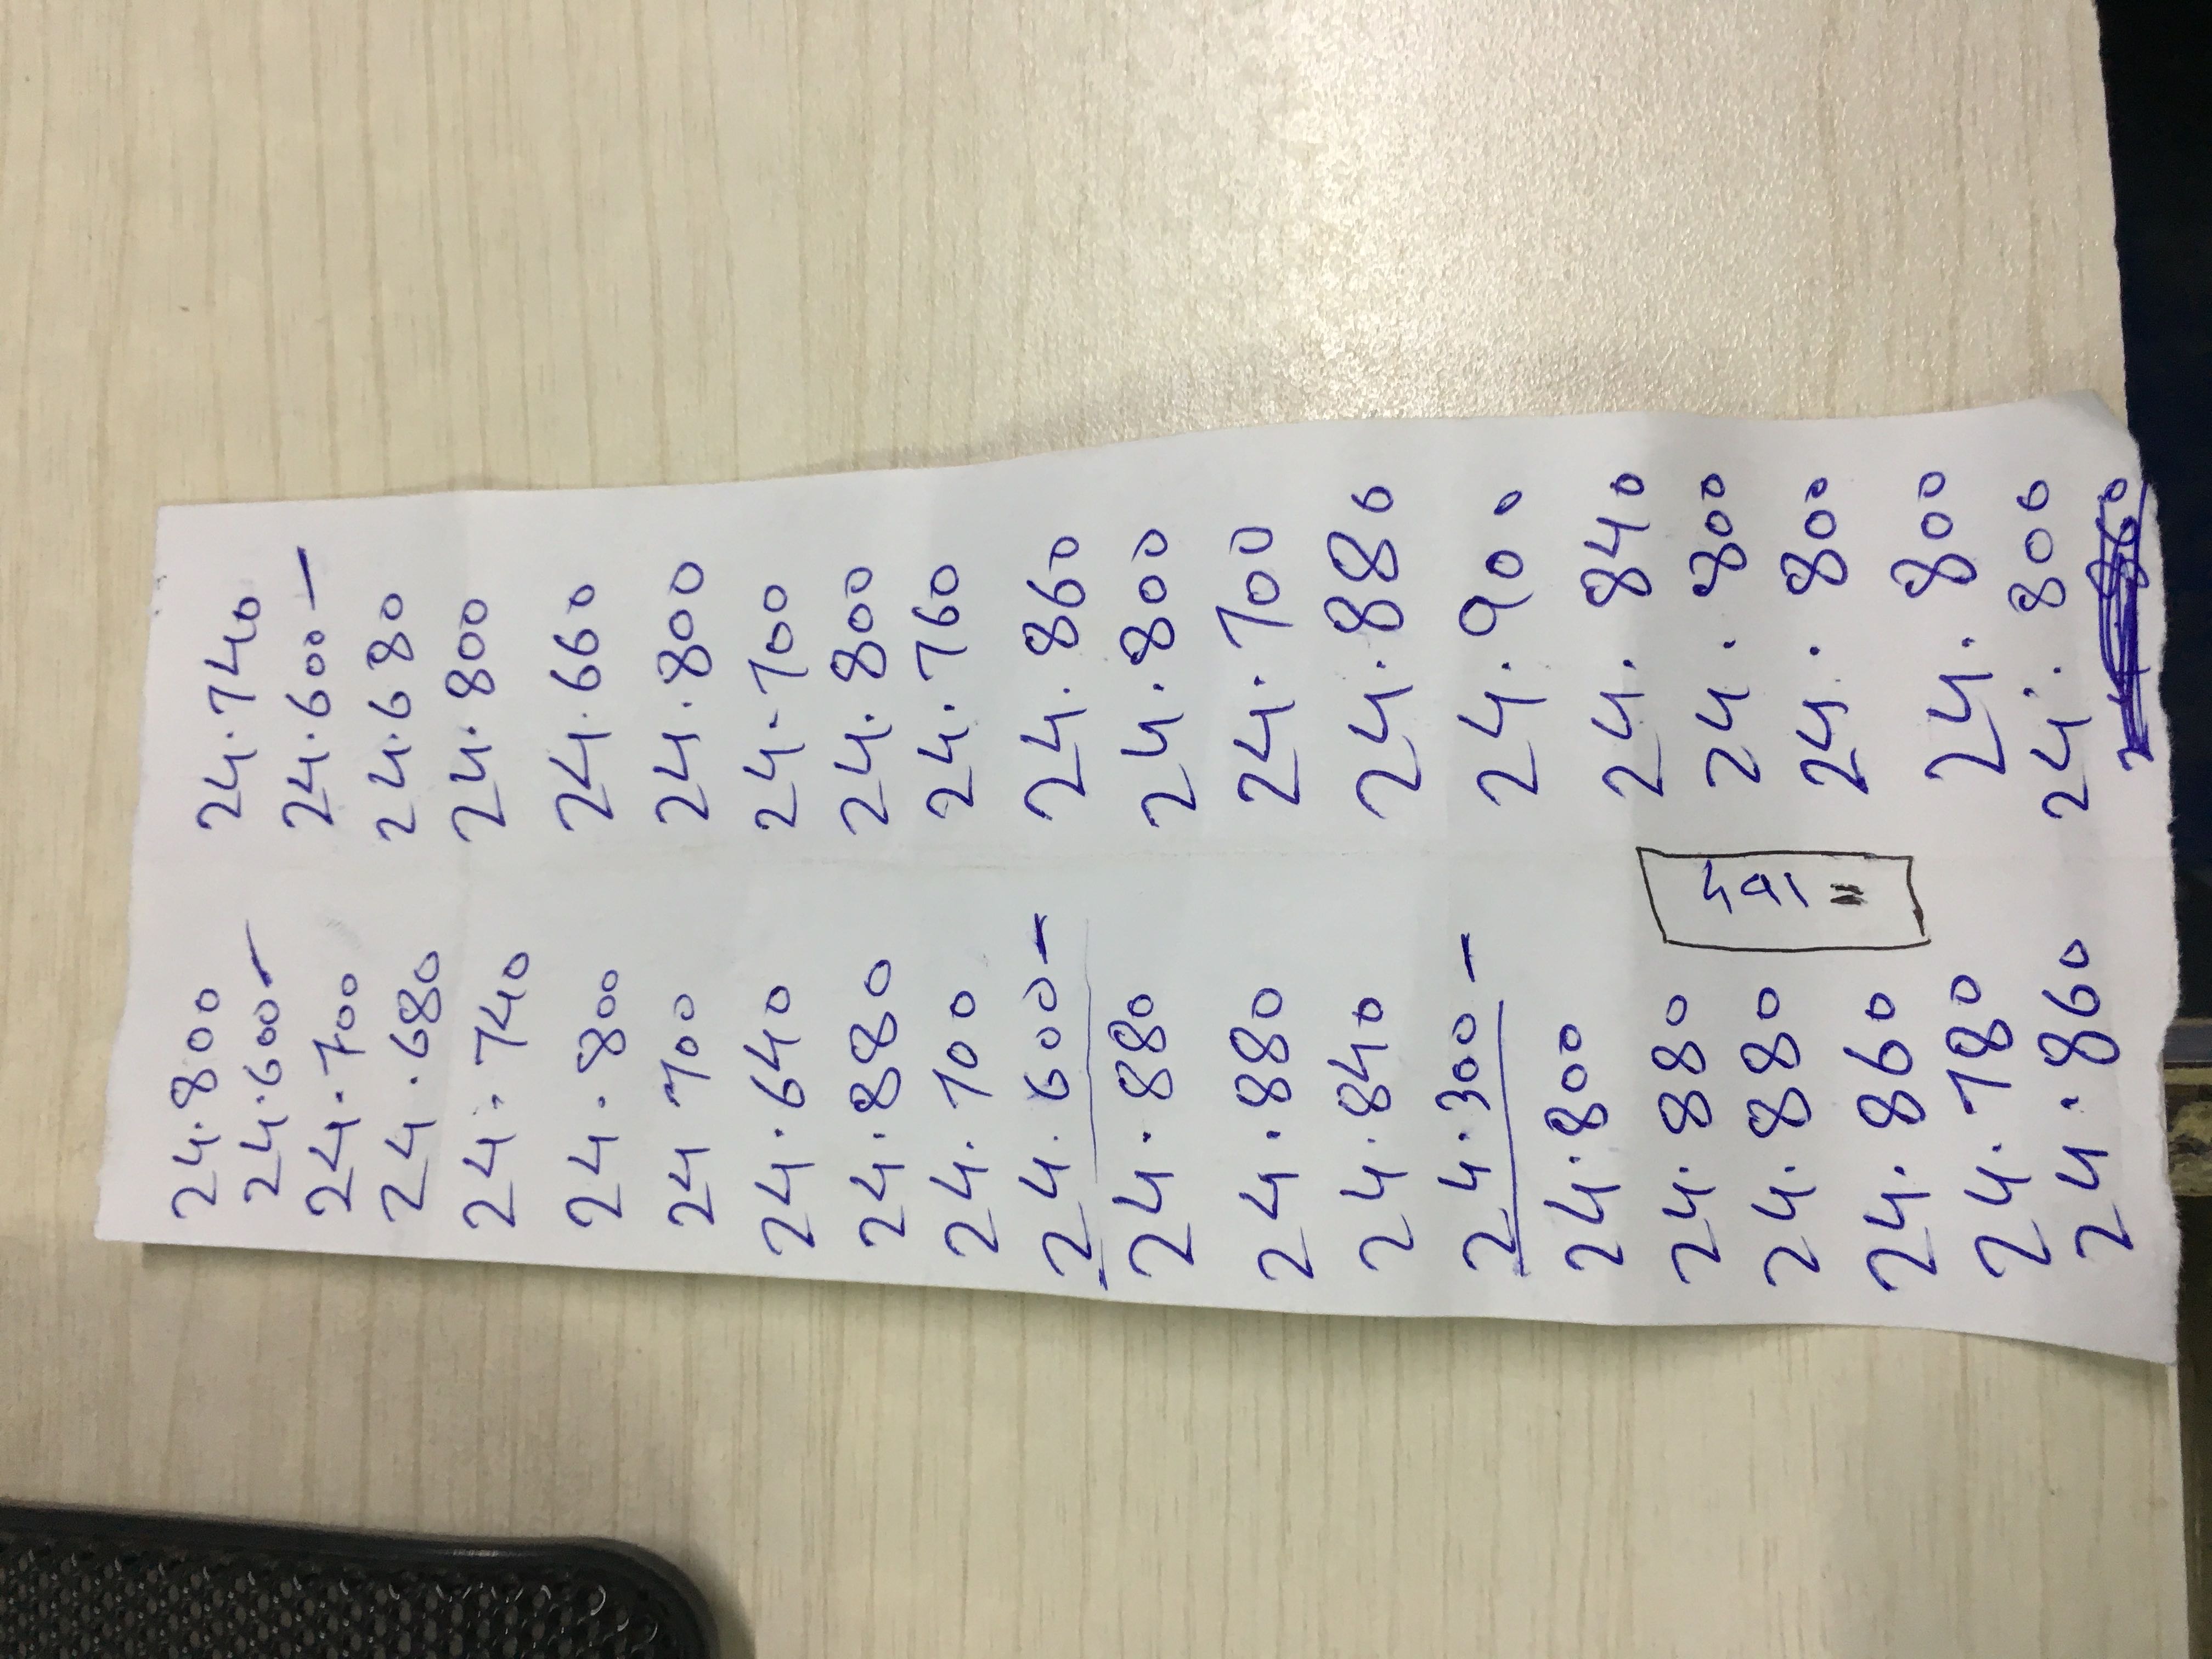 24.800
24.600-
24.700
24.680
24.740
24.800
24 700
24.640
24.880
24.700
24.600-
24.880
24.880
24.840
24.300-
24.800
24.880
24.880
24.860
24.780
24.860
24.740
24.600-
24.680
24.800
24.660
24.800
24.700
24.800
24.760
24.860
24.800
24.700
24.880
24.900
24.840
24.800
24.800
24.800
24.800